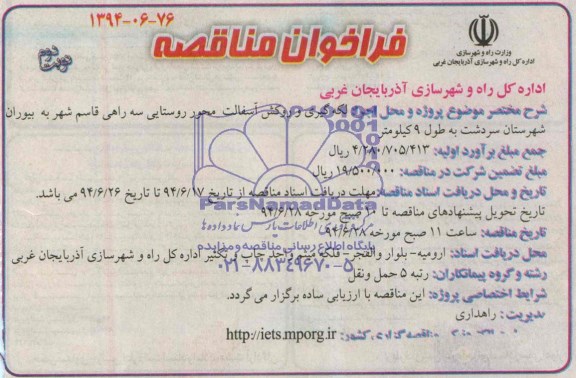 ۱۳۹۴-۰۶-۷۶
فراخوان مناقصه
نوبت دوم
وزارت راه و شهرسازی
اداره کل راه و شهرسازی آذربایجان غربی
اداره کل راه و شهرسازی آذربایجان غربی
شرح مختصر موضوع پروژه و محل اجرا: لکه گیری و روکش آسفالت محور روستایی سه راهی قاسم شهر به بیوران
شهرستان سردشت به طول ۹ کیلومتر
جمع مبلغ برآورد اولیه: ۴/۲۸۰/۷۰۵/۴۱۳ ریال
مبلغ تضمین شرکت در مناقصه: ۱۹/۵۰۰/۰۰۰ ریال
تاریخ و محل دریافت اسناد مناقصه: مهلت دریافت اسناد مناقصه از تاریخ ۹۴/۶/۱۷ تا تاریخ ۹۴/۶/۲۶ می باشد.
تاریخ تحویل پیشنهادهای مناقصه تا ۱۰ صبح مورخه ۹۴/۶/۲۸
تاریخ مناقصه: ساعت ۱۱ صبح مورخه ۹۴/۶/۲۸
محل دریافت اسناد: ارومیه- بلوار والفجر- فلکه میثم واحد چاپ و تکثیر اداره کل راه و شهرسازی آذربایجان غربی
رشته و گروه پیمانکاران: رتبه ۵ حمل ونقل
شرایط اختصاصی پروژه: این مناقصه با ارزیابی ساده برگزار می گردد.
مدیریت: راهداری
مناقصه گزاری کشور: http://iets.mporg.ir
ParsNamadData
فن آوری اطلاعات پارس نماد داده ها
پایگاه اطلاع رسانی مناقصه و مزایده
۰۲۱-۸۸۳۴۹۶۷۰-۵